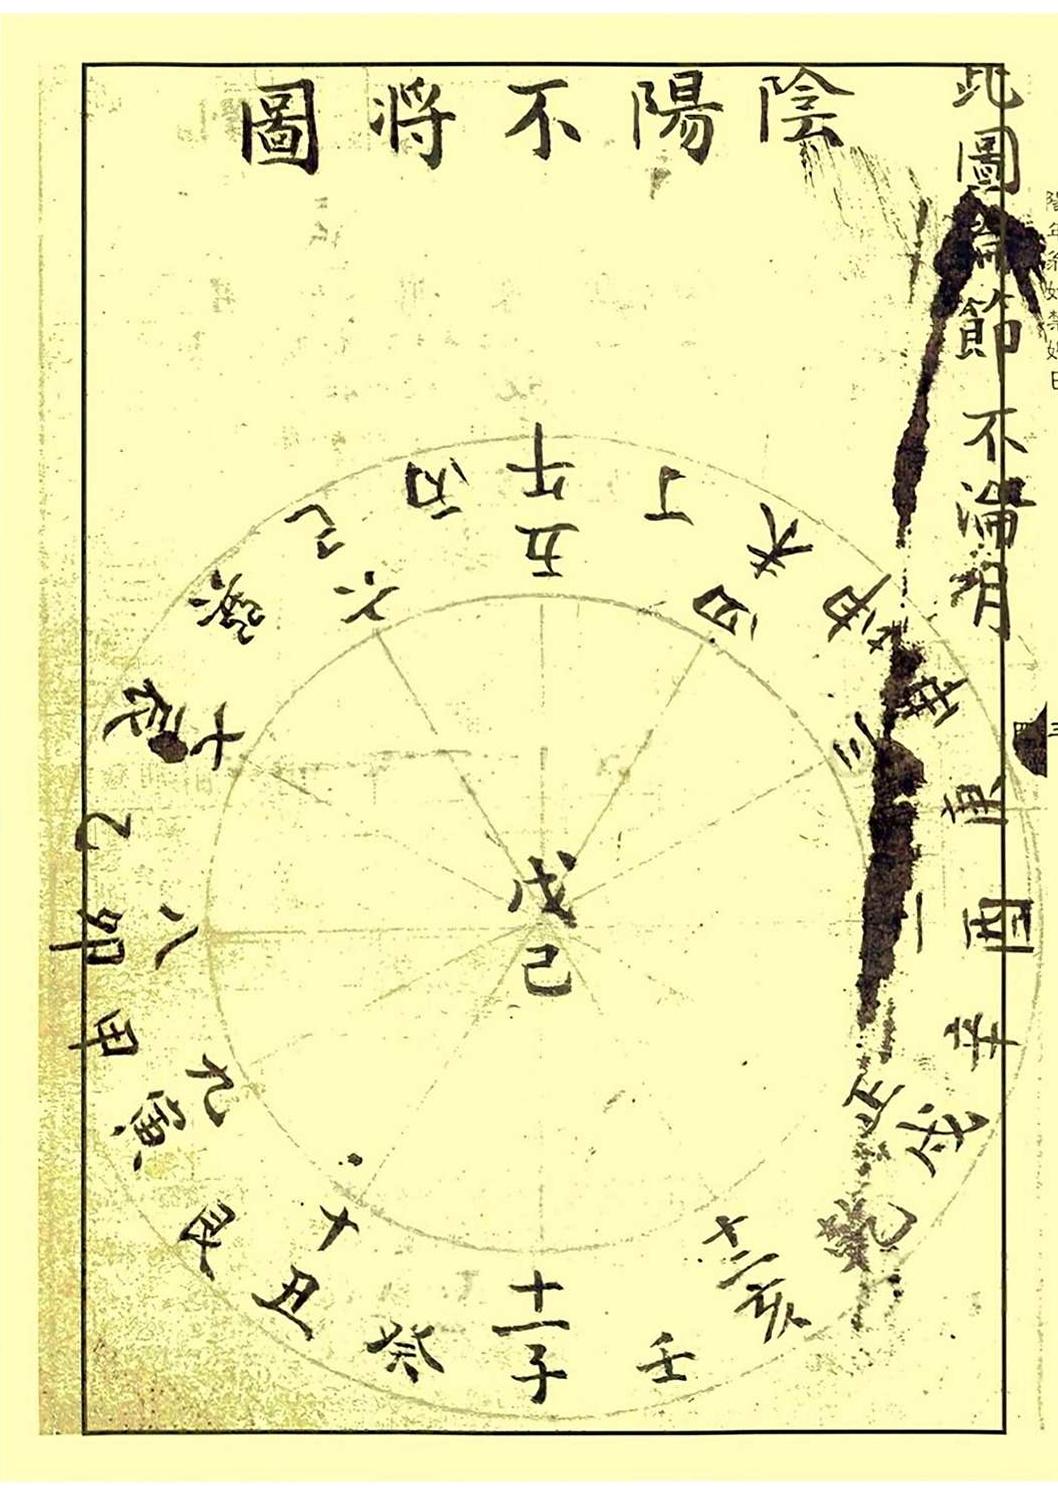 此圖論節不論月
陰陽不将圖
午丁未坤申庚酉辛戌乾亥壬子癸丑艮寅甲卯乙辰巽巳丙
五四三二正十二十一十九八七六
戊己